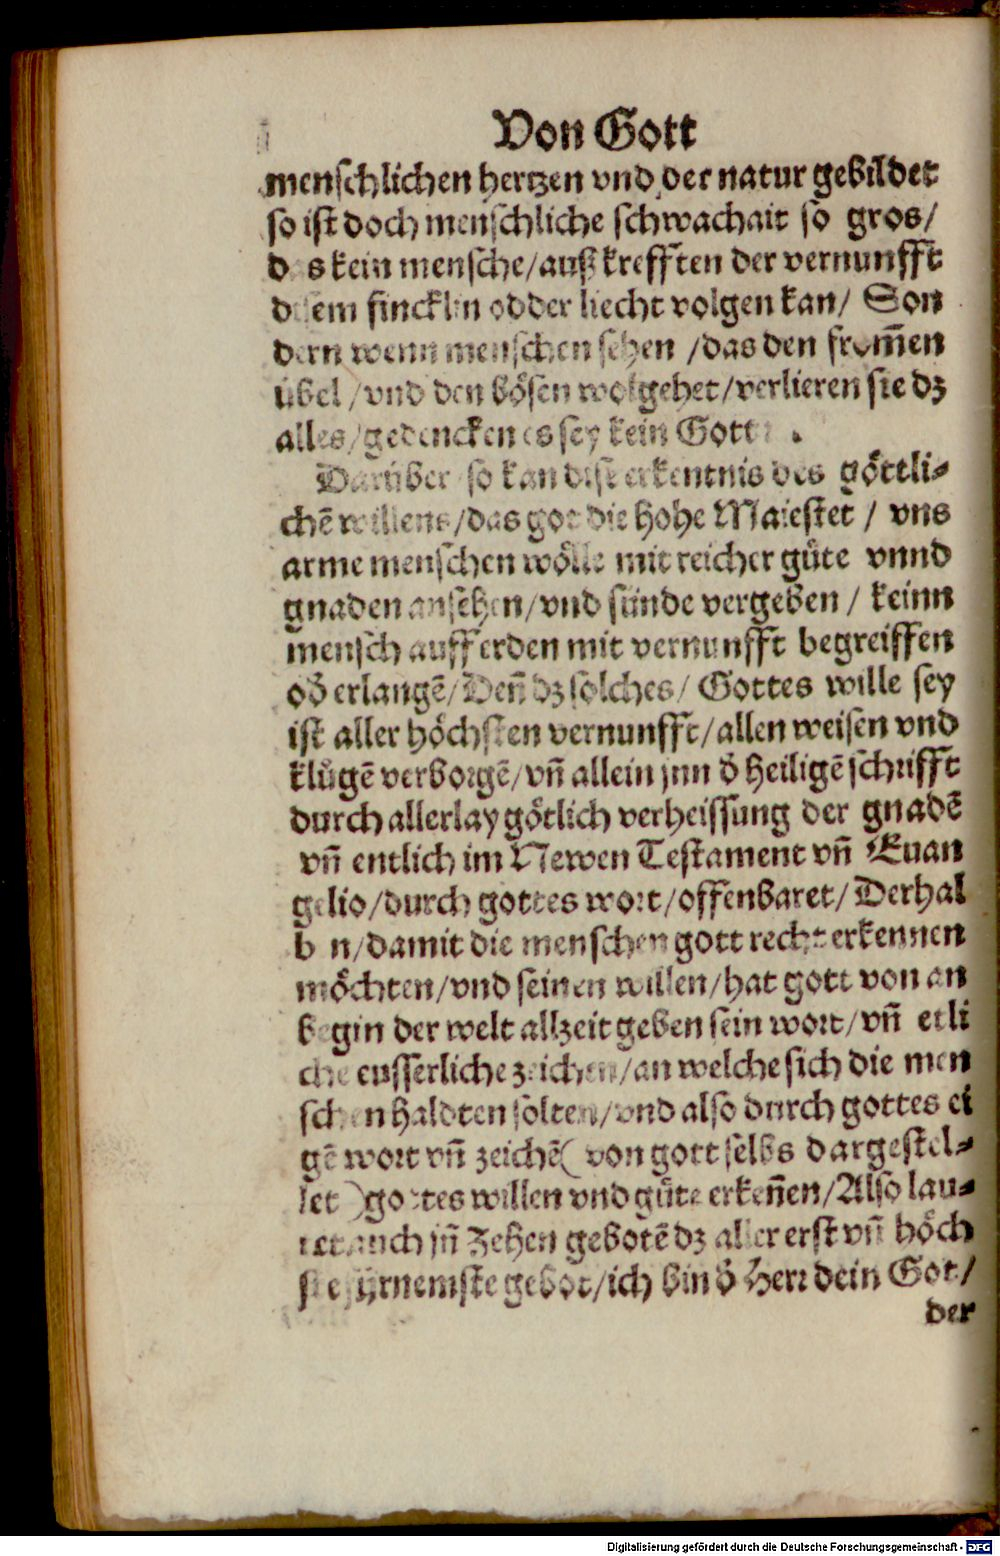 Von Gott
menschlichen hertzen vnd der natur gebildet
so ist doch menschliche schwachait so gros/
das kein mensche/auß krefften der vernunfft
disem fincklin odder liecht volgen kan/ Son
dern wenn menschen sehen /das den from̃en
übel /vnd den bösen wolgehet/verlieren sie dz
alles/gedencken es sey kein Gott.
Darüber so kan dise erkentnis des göttli⸗
chẽ willens/das got die hohe Maiestet / vns
arme menschen wölle mit reicher güte vnnd
gnaden ansehen/vnd sünde vergeben / keinn
mensch auff erden mit vernunfft begreiffen
oď erlangẽ/Deñ dz solches/ Gottes wille sey
ist aller höchsten vernunfft/allen weisen vnd
klůgẽ verborgẽ/vñ allein jnn ď heiligẽ schrifft
durch allerlay götlich verheissung der gnadẽ
vñ entlich im Newen Testament vñ Euan
gelio/durch gottes wort/offenbaret/Derhal
ben/damit die menschen gott recht erkennen
möchten/vnd seinen willen/hat gott von an
begin der welt allzeit geben sein wort/vñ etli
che eusserliche zeichen/an welche sich die men
schen haldten solten/vnd also durch gottes ei
gẽ wort vñ zeichẽ( von gott selbs dargestel⸗
let )gottes willen vnd güte erkeñen/Also lau⸗
tet auch jñ Zehen gebotẽ dz aller erst vñ höch
ste fürnemste gebot/ich bin ď Herr dein Got/
der
Digitalisierung gefördert durch die Deutsche Forschungsgemeinschaft - DFG